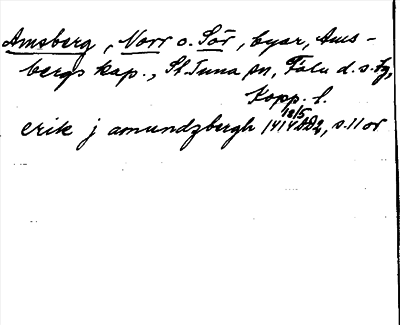 Amsberg, Norr o. Sör, byar, Ams-
bergs kap., St. Tuna sn, Falu d. s. fg,
Kopp. l.
18/5
erik j amundzbergh 1414 DD2, s. 11 or